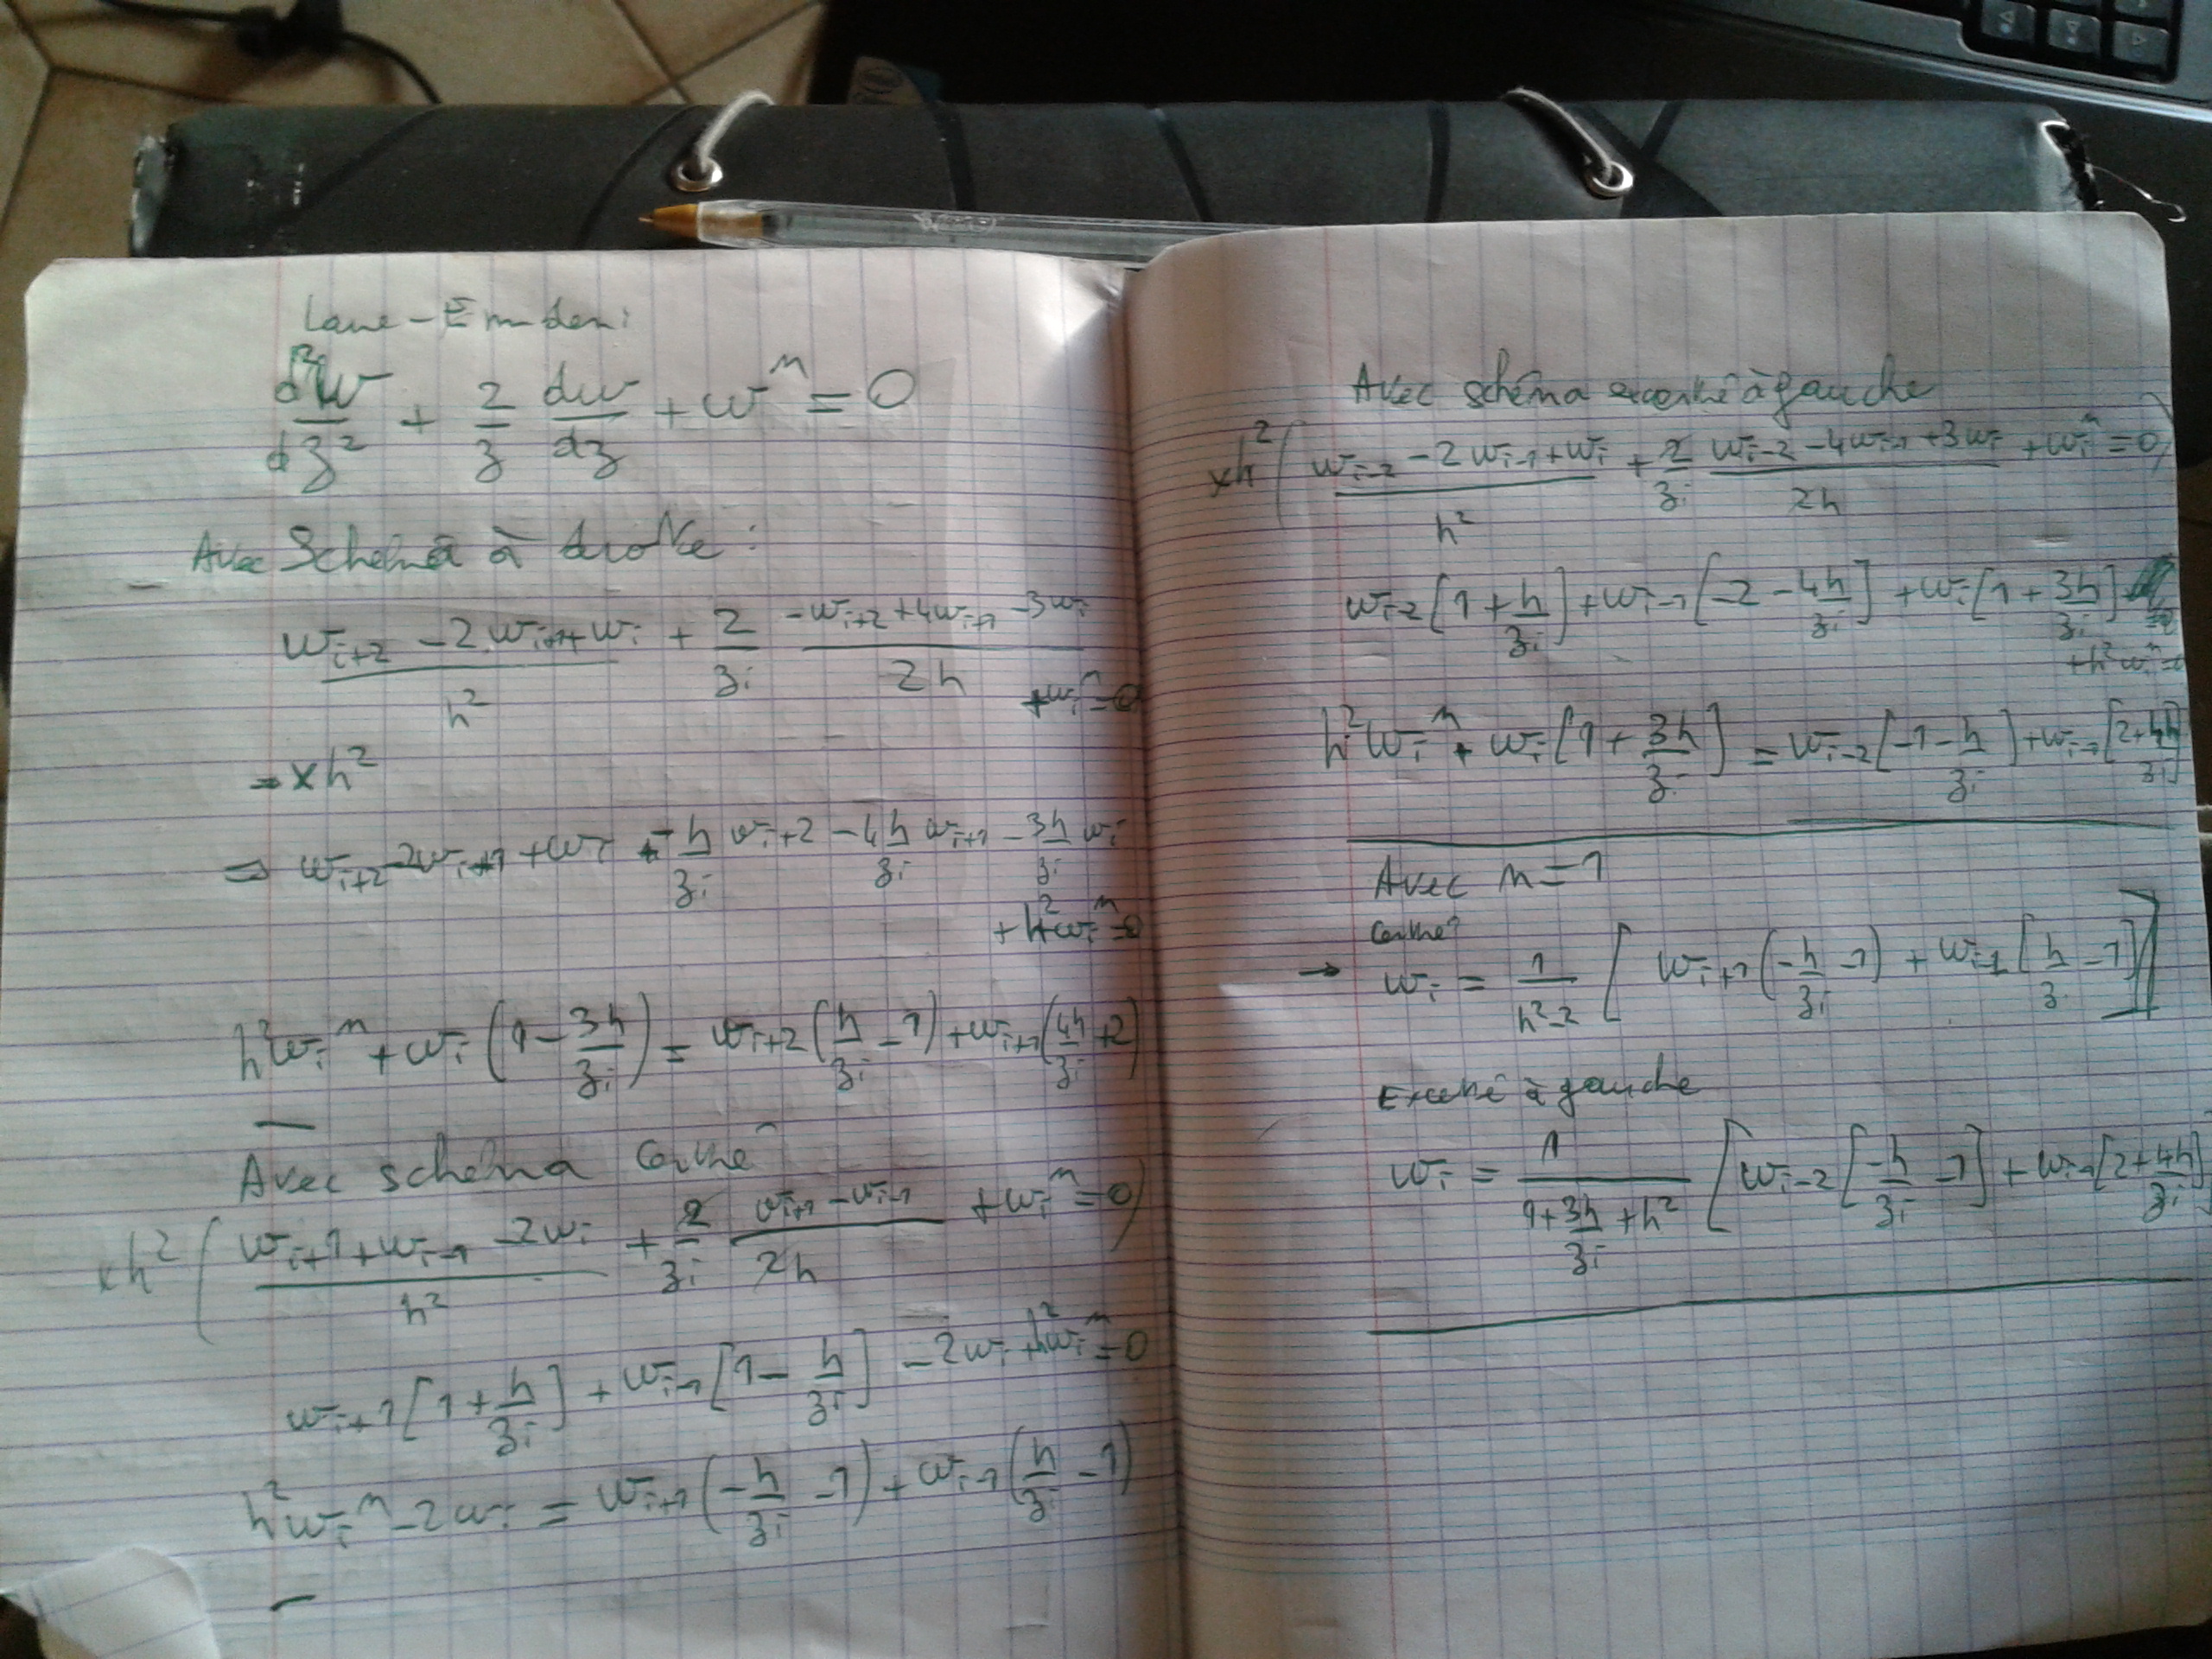 Lane-Emden:
d²w/dz² + 2/z dw/dz + w^n = 0
Avec Schéma à droite :
(w_{i+2} - 2w_{i+1} + w_i)/h² + 2/z_i (-w_{i+2} + 4w_{i+1} - 3w_i)/2h
+ w_i^n = 0
→ × h²
⇒ w_{i+2} - 2w_{i+1} + w_i - h/z_i w_{i+2} - 4h/z_i w_{i+1} - 3h/z_i w_i
+ h² w_i^n = 0
h² w_i^n + w_i (1 - 3h/z_i) = w_{i+2} (h/z_i - 1) + w_{i+1} (4h/z_i + 2)
Avec schéma centré
× h² ( (w_{i+1} + w_{i-1} - 2w_i)/h² + 2/z_i (w_{i+1} - w_{i-1})/2h + w_i^n = 0 )
w_{i+1} [1 + h/z_i] + w_{i-1} [1 - h/z_i] - 2w_i + h² w_i^n = 0
h² w_i^n - 2w_i = w_{i+1} (-h/z_i - 1) + w_{i-1} (h/z_i - 1)
Avec schéma excentré à gauche
× h² ( (w_{i-2} - 2w_{i-1} + w_i)/h² + 2/z_i (w_{i-2} - 4w_{i-1} + 3w_i)/2h + w_i^n = 0 )
w_{i-2} [1 + h/z_i] + w_{i-1} [-2 - 4h/z_i] + w_i [1 + 3h/z_i]
+ h² w_i^n =
h² w_i^n + w_i [1 + 3h/z_i] = w_{i-2} [-1 - h/z_i] + w_{i-1} [2 + 4h/z_i]
Avec n = 1
Centré
→ w_i = 1/(h² - 2) [ w_{i+1} (-h/z_i - 1) + w_{i-1} [h/z - 1] ]
Excentré à gauche
w_i = 1/(1 + 3h/z_i + h²) [ w_{i-2} [-h/z_i - 1] + w_{i-1} [2 + 4h/z_i]